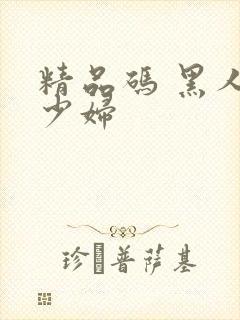 精品碼 黑人
少婦
珍�普萨基